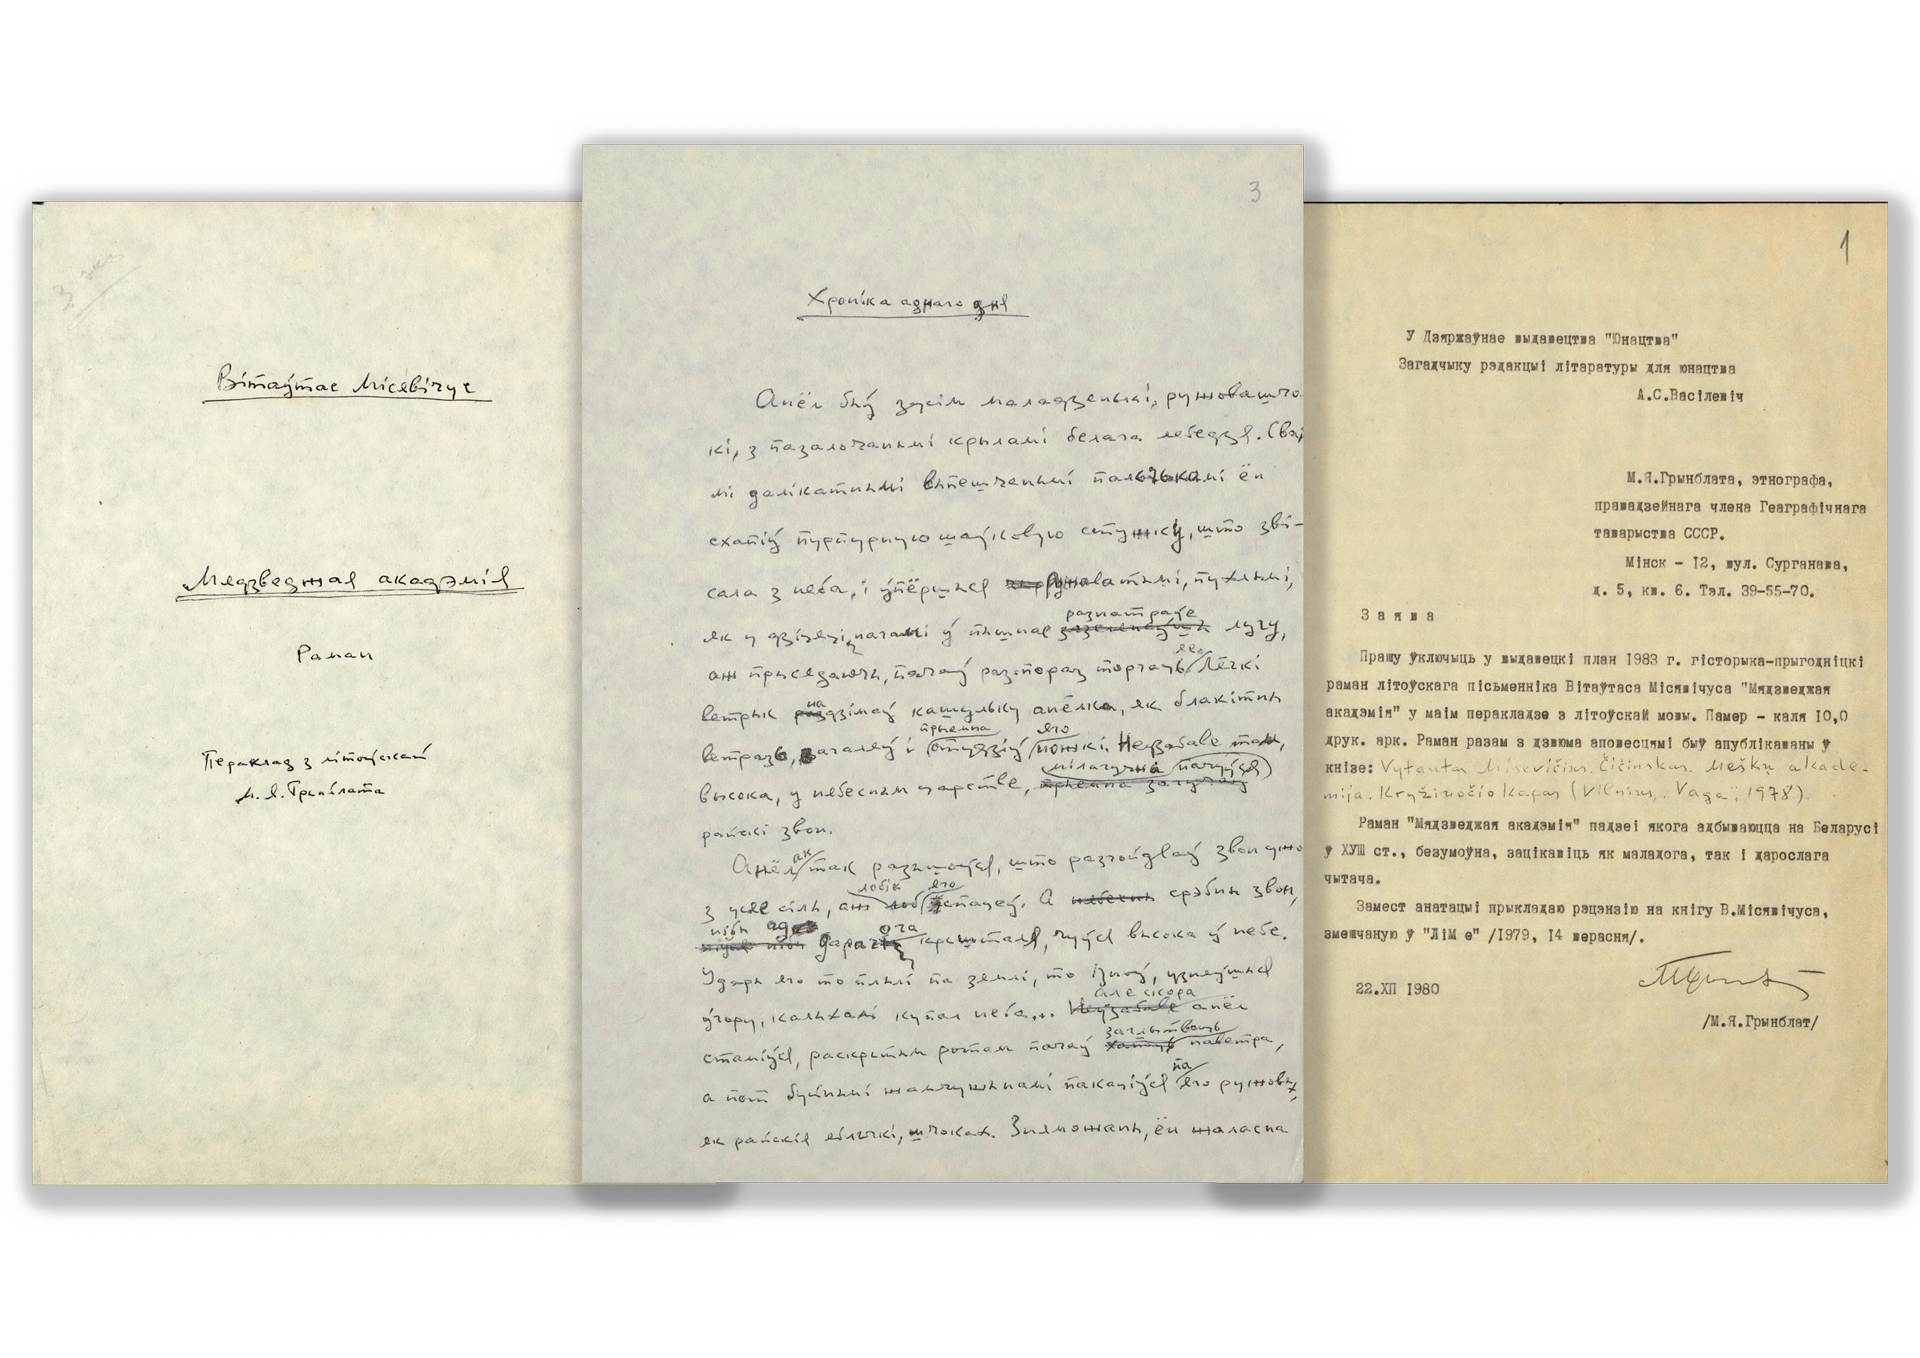 3 экз
Вітаўтас Місявічус
Мядзведжая акадэмія
Раман
Пераклад з літоўскай
М. Я. Грынблата
3
Хроніка аднаго дня
Анёл быў зусім маладзенькі, ружовашчо-
кі, з пазалочанымі крыламі белага лебедзя. Сваі-
мі далікатнымі выпешчанымі пальчыкамі ён
схапіў пурпурную шаўковую стужку, што зві-
сала з неба, і ўпёршыся ружаватымі, пухлымі,
як у дзіцяці, нагамі ў пышнае разнатраўе лугу,
аж прысядаючы, пачаў раз-пораз торгаць яе. Лёгкі
ветрык надзімаў кашульку анёлка, як блакітны
ветразь, і прыемна студзіў яго ножкі. Неўзабаве там,
высока, у нябесным царстве, мілагучна пачуўся
райскі звон.
Анёлак так разышоўся, што разгойдваў звон ужо
з усяе сілы, аж лобік яго спацеў. А срэбны звон,
нібы ад дарагога крышталя, чуўся высока ў небе.
Удары яго то плылі па зямлі, то ізноў, узняўшыся
ўгору, калыхалі купал неба... Але скора анёл
стаміўся, раскрытым ротам пачаў заглытваць паветра,
а пот буйнымі жамчужынамі пакаціўся па яго ружовых,
як райскія яблычкі, шчоках. Зняможаны, ён жаласна
1
У Дзяржаўнае выдавецтва "Юнацтва"
Загадчыку рэдакцыі літаратуры для юнацтва
А.С.Васілевіч
М.Я.Грынблата, этнографа,
правадзейнага члена Геаграфічнага
таварыства СССР.
Мінск - I2, вул. Сурганава,
д. 5, кв. 6. Тэл. 39-55-70.
З а я в а
Прашу ўключыць у выдавецкі план I983 г. гісторыка-прыгодніцкі
раман літоўскага пісьменніка Вітаўтаса Місявічуса "Мядзведжая
акадэмія" у маім перакладзе з літоўскай мовы. Памер - каля I0,0
друк. арк. Раман разам з дзвюма аповесцямі быў апублікаваны ў
кнізе: Vytautas Misevičius. Čičinskas. Meškų akade-
mija. Kryžiuočio kapas (Vilnius, „Vaga", 1978).
Раман "Мядзведжая акадэмія" падзеі якога адбываюцца на Беларусі
ў ХУШ ст., безумоўна, зацікавіць як маладога, так і дарослага
чытача.
Замест анатацыі прыкладаю рэцэнзію на кнігу В.Місявічуса,
змешчаную ў "ЛіМ е" /I979, I4 верасня/.
22.ХП I980
/М.Я.Грынблат/